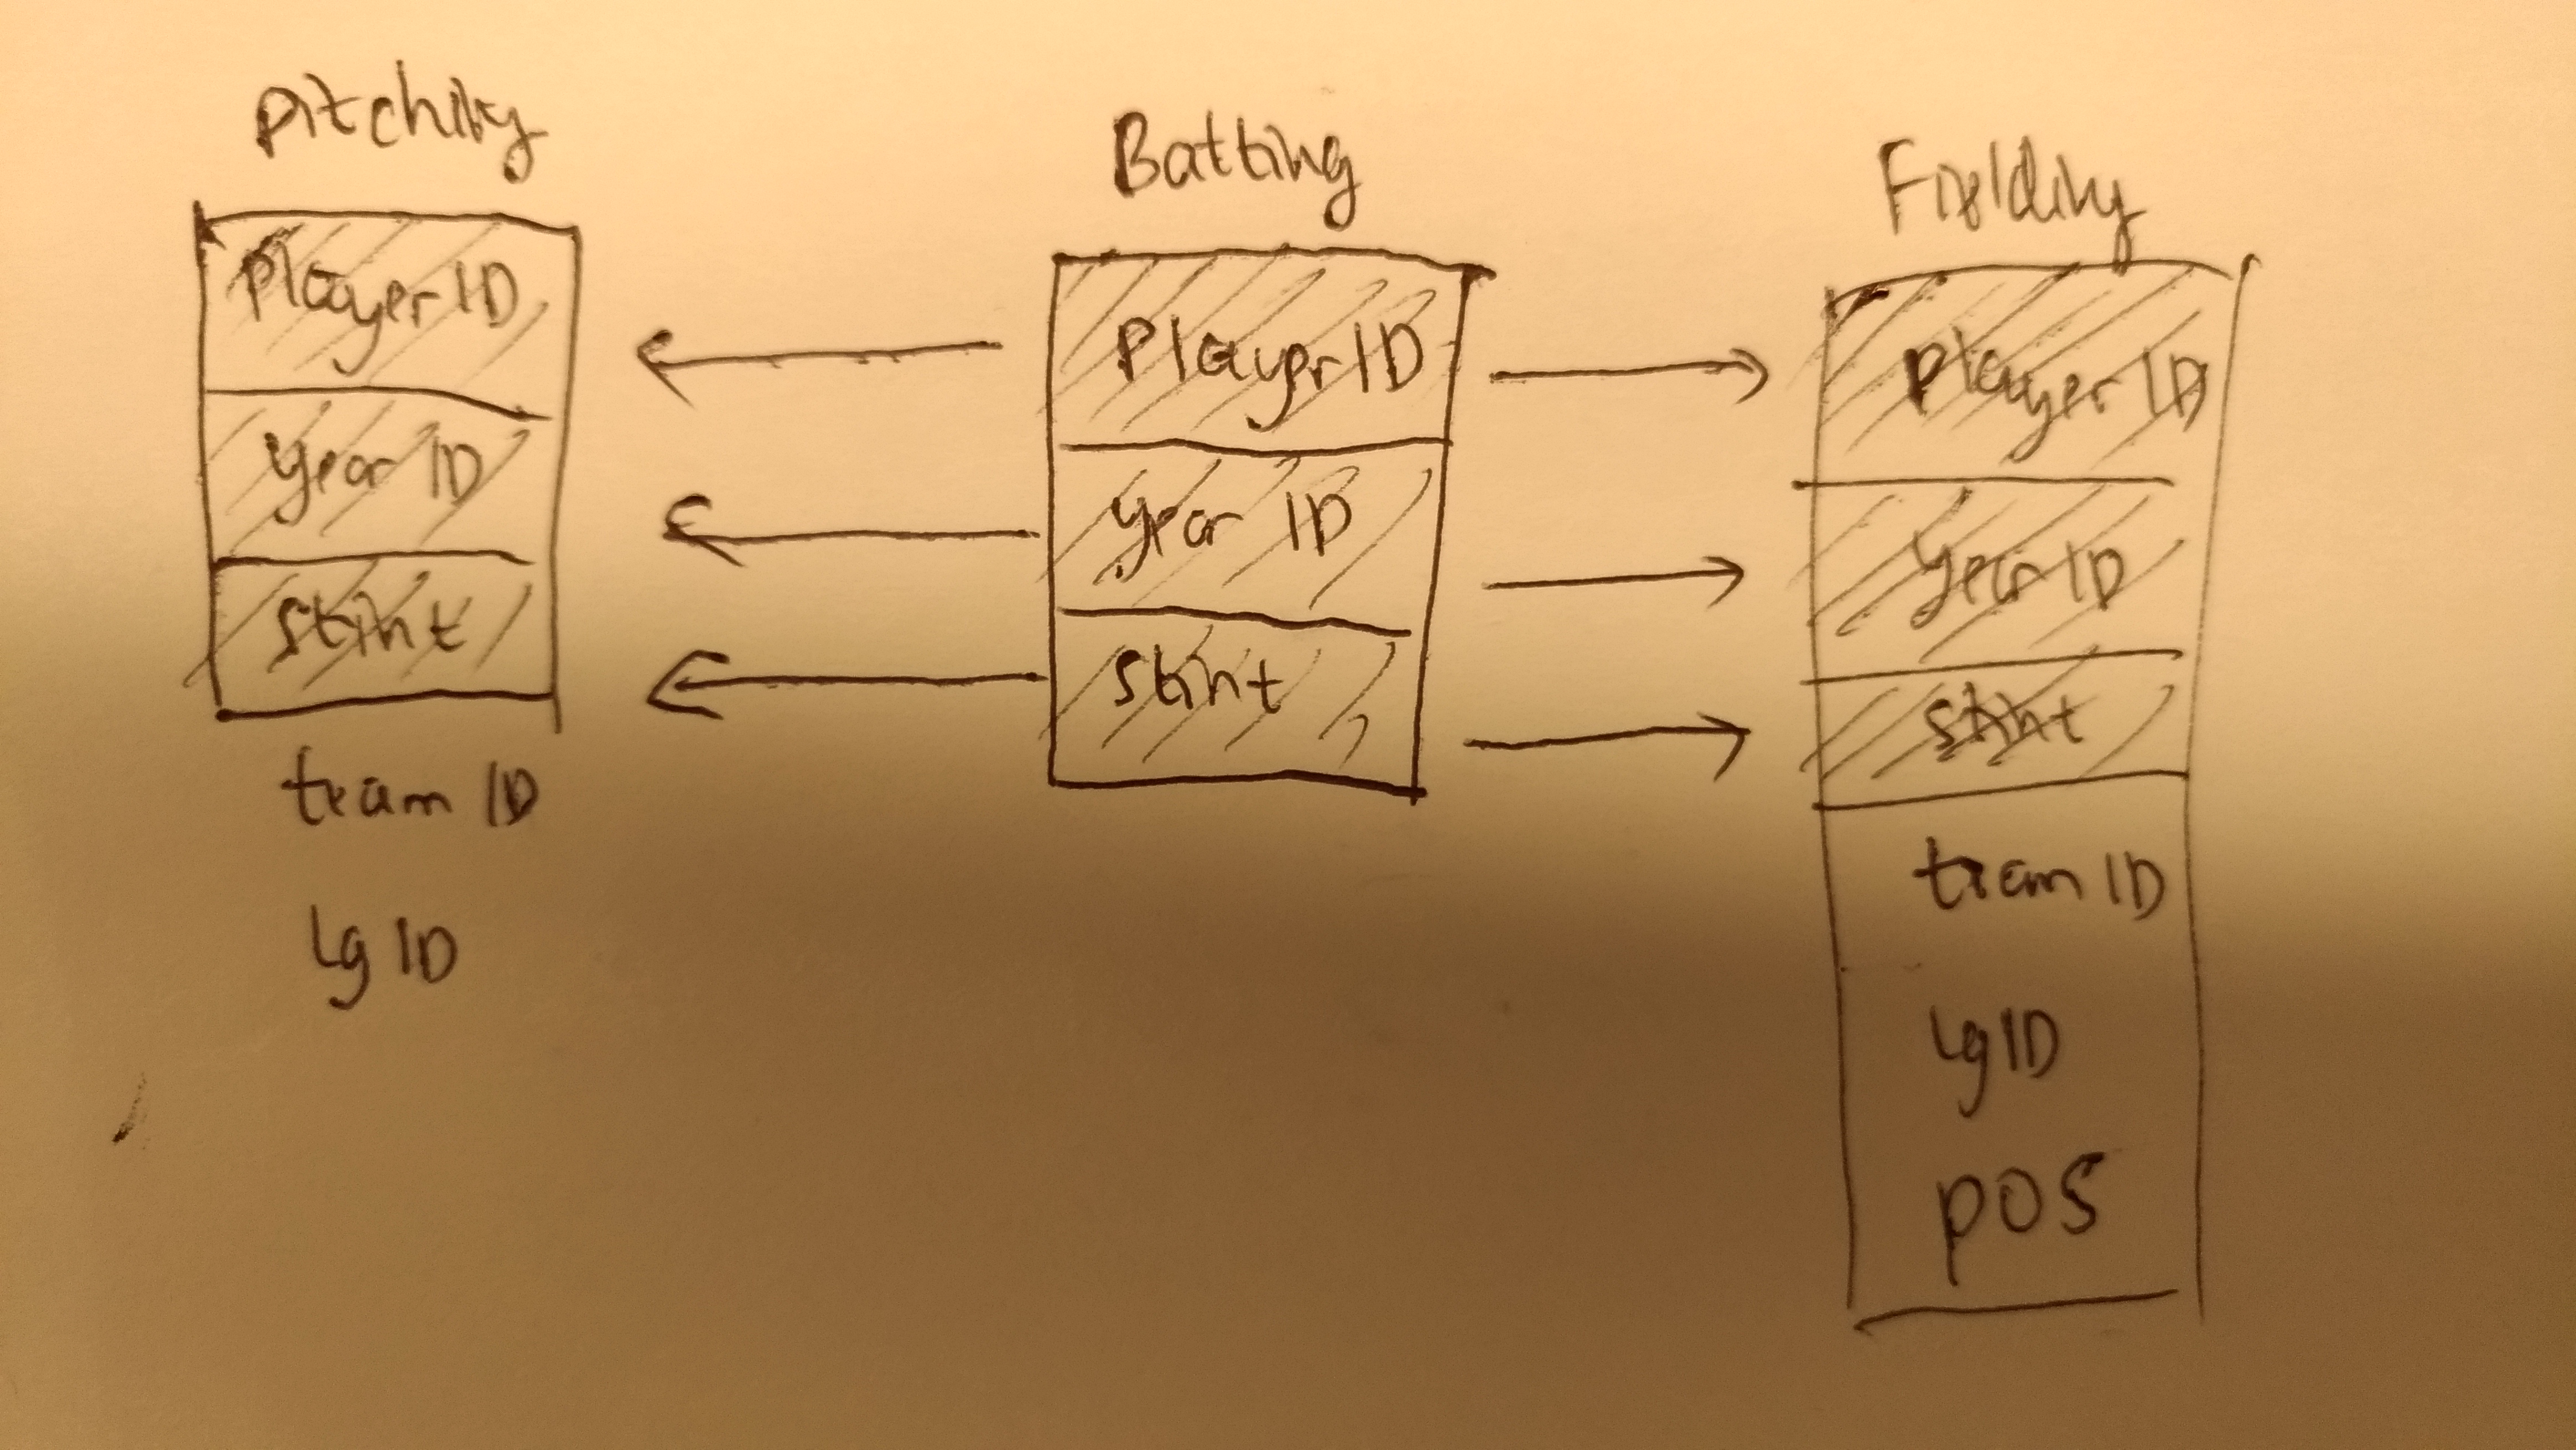 Pitching
player ID
year ID
stint
team ID
lg ID
Batting
Player ID
year ID
stint
Fielding
Player ID
year ID
stint
team ID
lg ID
POS